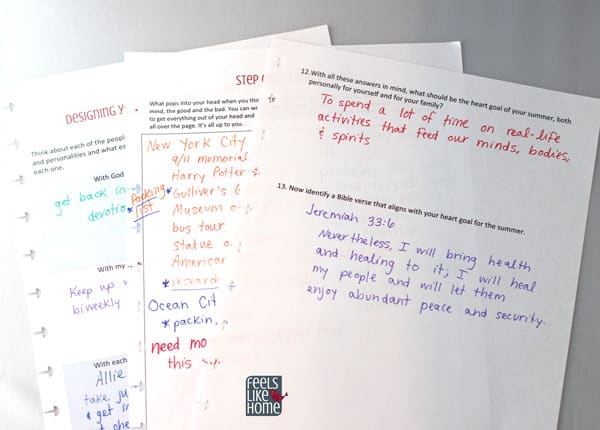 Designing y
Think about each of the peopl
and personalities and what ee
each one.
With God
get back in
devotio
With my
Keep up
biweekly
With each
Allie
take ju
& get
che
Step
What pops into your head when you thin
mind, the good and the bad. You can wr
to get everything out of your head and
all over the page. It's all up to you.
New York City
9/11 memorial
Harry Potter
packing
list
Gulliver's
Museum
bus tour
statue
American
*research
Ocean Cit
*packin
need mo
this
12. With all these answers in mind, what should be the heart goal of your summer, both
personally for yourself and for your family?
To spend a lot of time on real-life
activities that feed our minds, bodies,
& spirits
13. Now identify a Bible verse that aligns with your heart goal for the summer.
Jeremiah 33:6
Nevertheless, I will bring health
and healing to it; I will heal
my people and will let them
enjoy abundant peace and security.
FEELS
LIKE
HOME